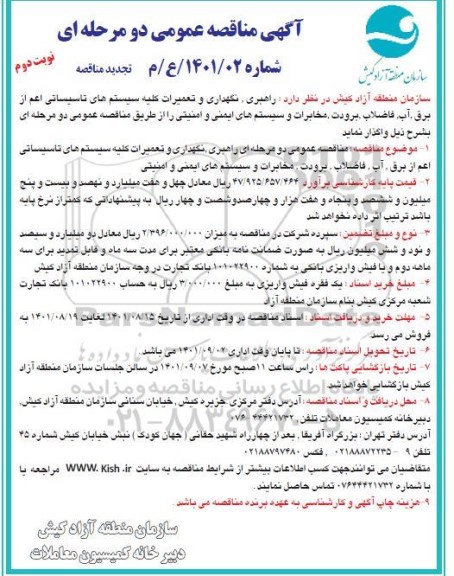 آگهی مناقصه عمومی دو مرحله ای
شماره ۱۴۰۱/۰۲/ع/م تجدید مناقصه
نوبت دوم
سازمان منطقه آزاد کیش
سازمان منطقه آزاد کیش در نظر دارد : راهبری ، نگهداری و تعمیرات کلیه سیستم های تاسیساتی اعم از
برق ،آب، فاضلاب ،برودت ،مخابرات و سیستم های ایمنی و امنیتی را از طریق مناقصه عمومی دو مرحله ای
بشرح ذیل واگذار نماید
۱- موضوع مناقصه: مناقصه عمومی دو مرحله ای راهبری ،نگهداری و تعمیرات کلیه سیستم های تاسیساتی
اعم از برق ، آب ، فاضلاب ، برودت ، مخابرات و سیستم های ایمنی و امنیتی
۲- قیمت پایه کارشناسی برآورد: ۴۷/۹۲۵/۶۵۷/۴۶۴ ریال معادل چهل و هفت میلیارد و نهصد و بیست و پنج
میلیون و ششصد و پنجاه و هفت هزار و چهارصد و شصت و چهار ریال به پیشنهاداتی که کمتر از نرخ پایه
باشد ترتیب اثر داده نخواهد شد
۳- نوع و مبلغ تضمین : سپرده شرکت در مناقصه به میزان ۲/۳۹۶/۰۰۰/۰۰۰ ریال معادل دو میلیارد و سیصد
و نود و شش میلیون ریال به صورت ضمانت نامه بانکی معتبر برای مدت سه ماه و قابل تمدید برای سه
ماهه دوم و یا فیش واریزی بانکی به شماره ۱۰۱۰۲۲۹۰۰ بانک تجارت در وجه سازمان منطقه آزاد کیش
۴- مبلغ خرید اسناد : یک فقره فیش واریزی به مبلغ ۳/۰۰۰/۰۰۰ ریال به حساب ۱۰۱۰۲۲۹۰۰ بانک تجارت
شعبه مرکزی کیش بنام سازمان منطقه آزاد
۵- مهلت خرید و دریافت اسناد : اسناد مناقصه در وقت اداری از تاریخ ۱۴۰۱/۰۸/۱۵ لغایت ۱۴۰۱/۰۸/۱۹ به
فروش می رسد
۶- تاریخ تحویل اسناد مناقصه : تا پایان وقت اداری ۱۴۰۱/۰۹/۰۲ می باشد
۷- تاریخ بازگشایی پاکت ها : راس ساعت ۱۱صبح مورخ ۱۴۰۱/۰۹/۰۷ در سالن جلسات سازمان منطقه آزاد
کیش بازگشایی خواهد شد
۸- محل دریافت و اسناد مناقصه : آدرس دفتر مرکزی جزیره کیش ، خیابان سنائی سازمان منطقه آزاد کیش،
دبیرخانه کمیسیون معاملات تلفن ۴۴۴۲۱۷۳۲-۰۷۶
آدرس دفتر تهران : بزرگراه آفریقا ، بعد از چهارراه شهید حقانی ( جهان کودک ) نبش خیابان کیش شماره ۴۵
تلفن ۹ - ۰۲۱۸۸۸۷۲۲۳۵ ، فکس ۰۲۱۸۸۷۹۷۴۸۰
متقاضیان می توانند جهت کسب اطلاعات بیشتر از شرایط مناقصه به سایت WWW. Kish .ir مراجعه یا
با شماره ۰۷۶۴۴۴۲۱۷۳۲ تماس حاصل نمایند .
۹-هزینه چاپ آگهی و کارشناسی به عهده برنده مناقصه می باشد .
سازمان منطقه آزاد کیش
دبیر خانه کمیسیون معاملات